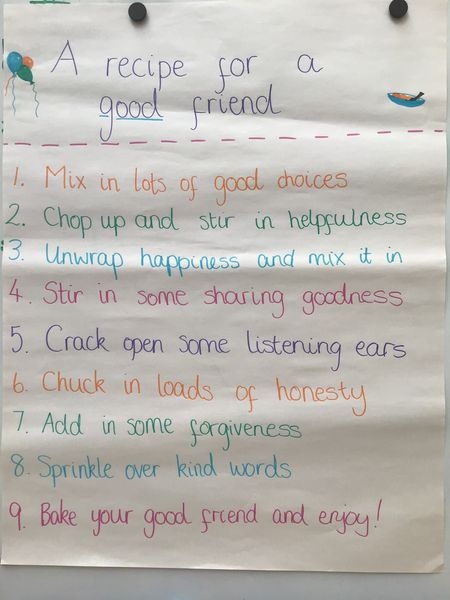 A recipe for a
good friend
1. Mix in lots of good choices
2. Chop up and stir in helpfulness
3. Unwrap happiness and mix it in
4. Stir in some sharing goodness
5. Crack open some listening ears
6. Chuck in loads of honesty
7. Add in some forgiveness
8. Sprinkle over kind words
9. Bake your good friend and enjoy!